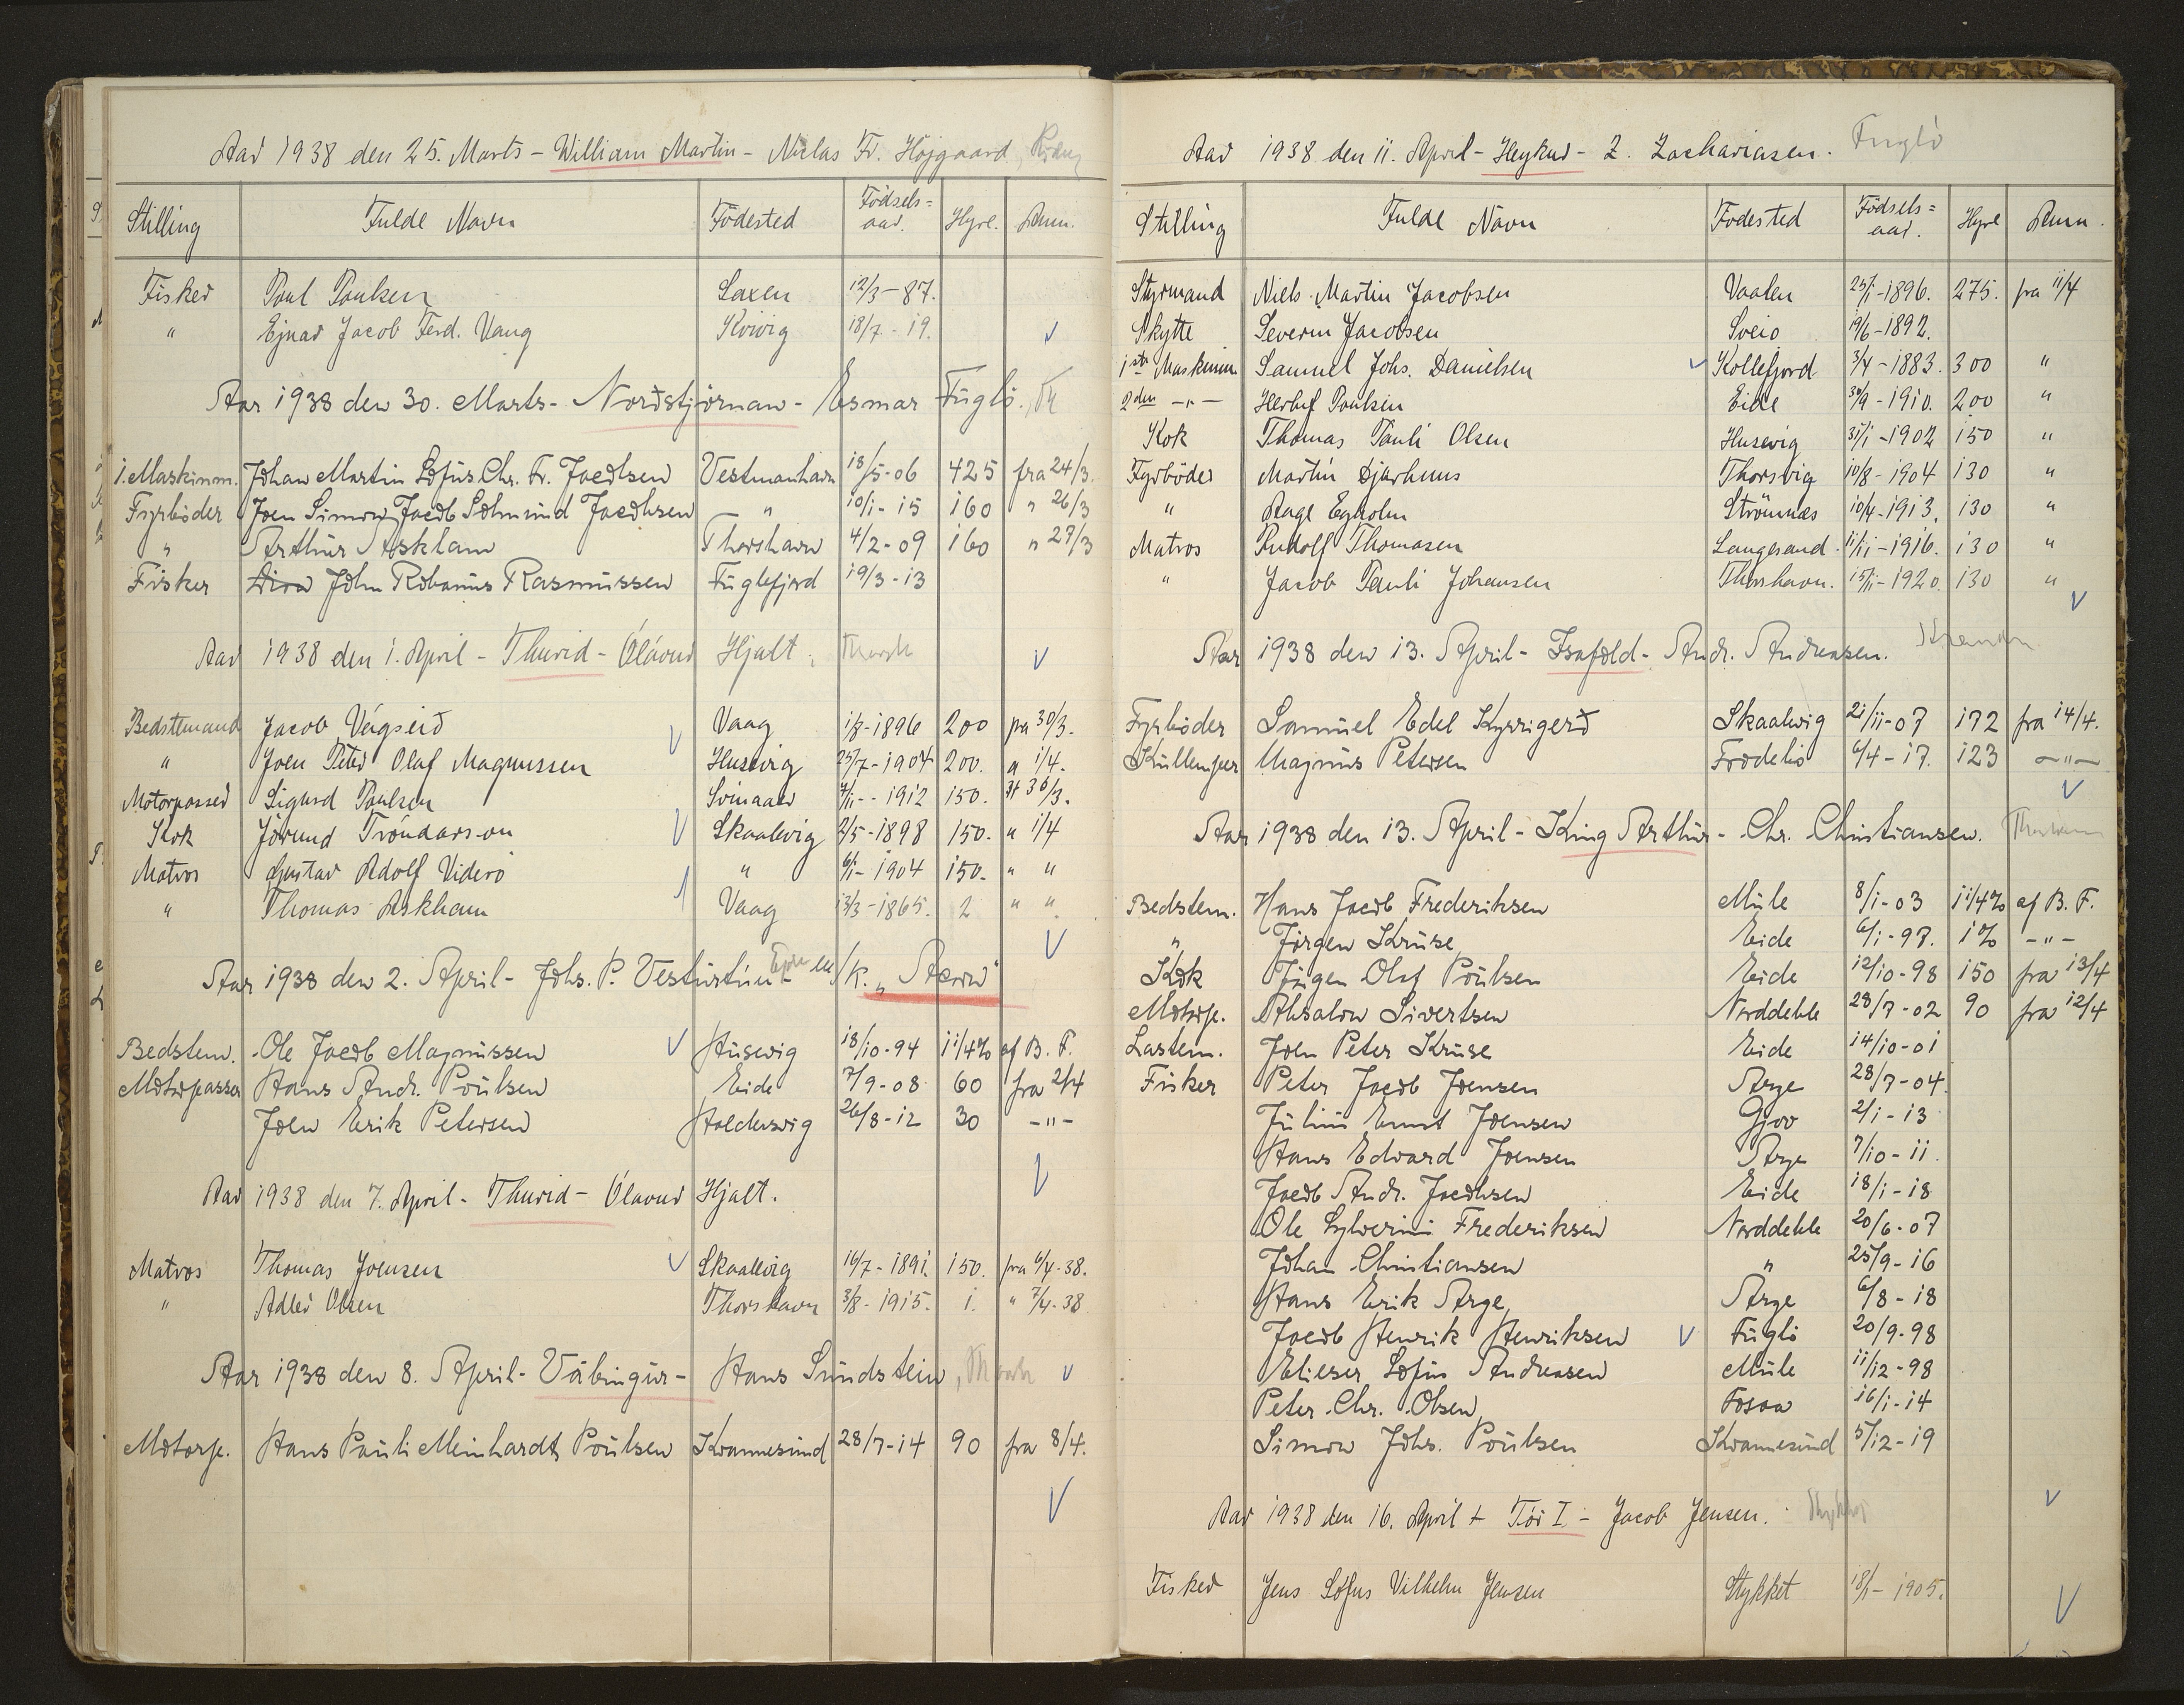 Aar 1938 den 25. Marts - William Martin - Niclas Fr. Højgaard,
Stilling Fulde Navn Födested Födsels=aar. Hyre. Anm.
Fisker Poul Poulsen Saxen 12/3-87.
" Ejnar Jacob Ferd. Vang Kvivig 18/7-19.
Aar 1938 den 30. Marts - Norðstjörnan - Esmar Fuglö.
1. Maskinm. Johan Martin Sofus Chr. Fr. Jacobsen Vestmanhavn 18/5-06 425 fra 24/3.
Fyrböder Joen Simon Jacob Salmund Jacobsen " 10/1-15 160 " 26/3
" Arthur Askham Thorshavn 4/2-09 160 " 27/3
Fisker John Robanus Rasmussen Fuglefjord 19/3-13
Aar 1938 den 1. April - Thurid - Ólávur Hjalt. Thorsh
Bedstemand Jacob Vágseið Vaag 1/8-1896 200 fra 30/3.
" Joen Peter Olaf Magnussen Husevig 25/7-1904 200. " 1/4.
Motorpasser Sigurd Poulsen Svinaaer 4/11-1912 150. " 30/3.
Kok Jörund Tróndarson Skaalevig 2/5-1898 150. " 1/4
Matros Gustav Adolf Viderö " 6/1-1904 150. " "
" Thomas Askham Vaag 13/3-1865. 2 " "
Aar 1938 den 2. April - Johs. P. Vesturtún - M/K. "Stern"
Bedstem. Ole Jacob Magnussen Húsevig 18/10-94 1 1/4% af B. F.
Motorpasser Hans Andr. Poulsen Eide 7/9-08 60 fra 2/4
Joen Erik Petersen Haldersvig 26/8-12 30 -"-
Aar 1938 den 7. April - Thurid - Ólávur Hjalt.
Matros Thomas Joensen Skaalevig 16/7-1891. 150. fra 6/4-38.
" Adler Olsen Thorshavn 3/8-1915. 1. " 7/4-38.
Aar 1938 den 8. April - Vábingur - Hans Sundstein,
Motorp. Hans Pauli Meinhardt Poulsen Kvannesund 28/7-14 90 fra 8/4.
Aar 1938 den 11. April - Heykur - Z. Zachariasen. Fuglö
Stilling Fulde Navn Födested Födsels=aar. Hyre Anm.
Styrmand Niels Martin Jacobsen Vaalen 25/1-1896. 275. fra 11/4
Skytte Severin Jacobsen Sveio 19/6-1892.
1ste Maskinm. Samuel Johs. Danielsen Kollefjord 3/4-1883. 300 "
2den -"- Herluf Poulsen Eide 30/9-1910. 200 "
Kok Thomas Pauli Olsen Husevig 31/1-1902 150 "
Fyrböder Martin Djurhuus Thorsvig 10/8-1904 130 "
" Aage Egholm Strömnæs 10/4-1913. 130 "
Matros Rudolf Thomasen Langesand. 11/11-1916. 130 "
" Jacob Pauli Johansen Thorshavn. 15/11-1920. 130 "
Aar 1938 den 13. April - Isafold - Andr. Andreasen.
Fyrböder Samuel Edel Kyrrigerð Skaalevig 21/11-07 172 fra 14/4.
Kullemper Magnus Petersen Frodebö 6/4-17. 123 -"-
Aar 1938 den 13. April - King Arthur - Chr. Christiansen.
Bedstem. Hans Jacob Frederiksen Múle 8/1-03 1 1/4% af B. F.
" Jörgen Kruse Eide 6/1-97. 1% -"-
Kok Jörgen Olaf Poulsen Eide 12/10-98 150 fra 13/4
Motorp. Absalon Sivertsen Norddeble 28/7-02 90 fra 12/4
Lastem. Joen Peter Kruse Eide 14/10-01
Fisker Peter Jacob Joensen Arge 28/7-04.
Julius Ernst Joensen Gjov 2/1-13
Hans Edvard Joensen Arge 7/10-11.
Jacob Andr. Jacobsen Eide 18/1-18
Ole Sylverius Frederiksen Norddeble 20/6-07
Johan Christiansen " 25/9-16
Hans Erik Arge Arge 6/8-18
Jacob Henrik Henriksen Fuglö 20/9-98
Elieser Sofus Andreasen Múle 11/12-98
Peter Chr. Olsen Fossaa 16/1-14
Simon Johs. Poulsen Kvannesund 5/12-19
Aar 1938 den 16. April - Tór I - Jacob Jensen.
Fisker Jens Sofus Vilhelm Jensen Stykket 18/1-1905.